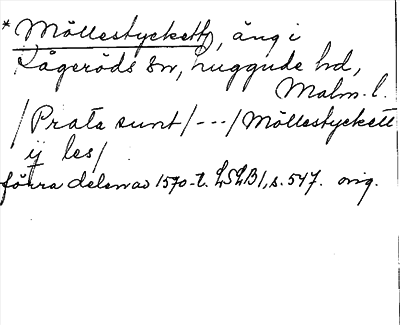 * Möllestyckett, äng i
Kågeröds sn, Luggude hd,
Malm. l.
/Prata sunt/---/Möllestyckett
ij les/
förra delen av 1570-t. LSLB 1, s. 547. orig.